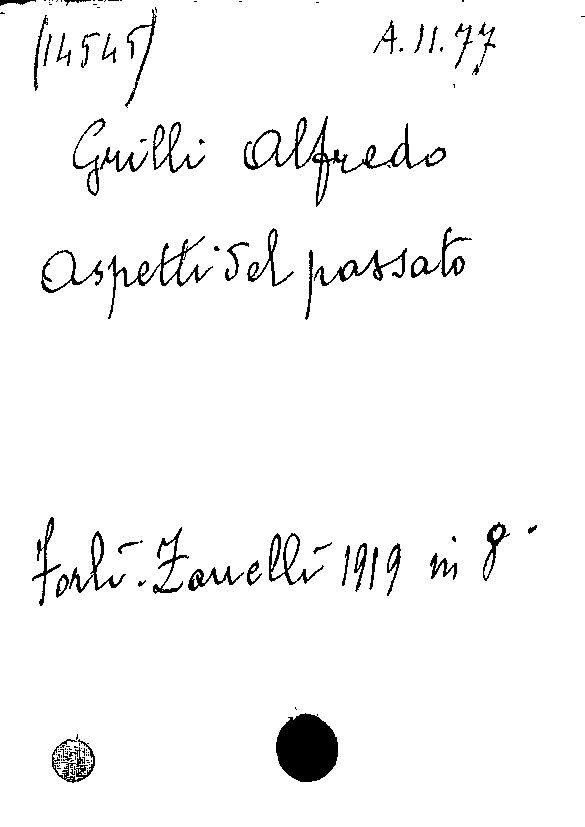 (14545) A.II.77
Grilli Alfredo
Aspetti del passato
Forlì. Zanelli 1919 in 8°